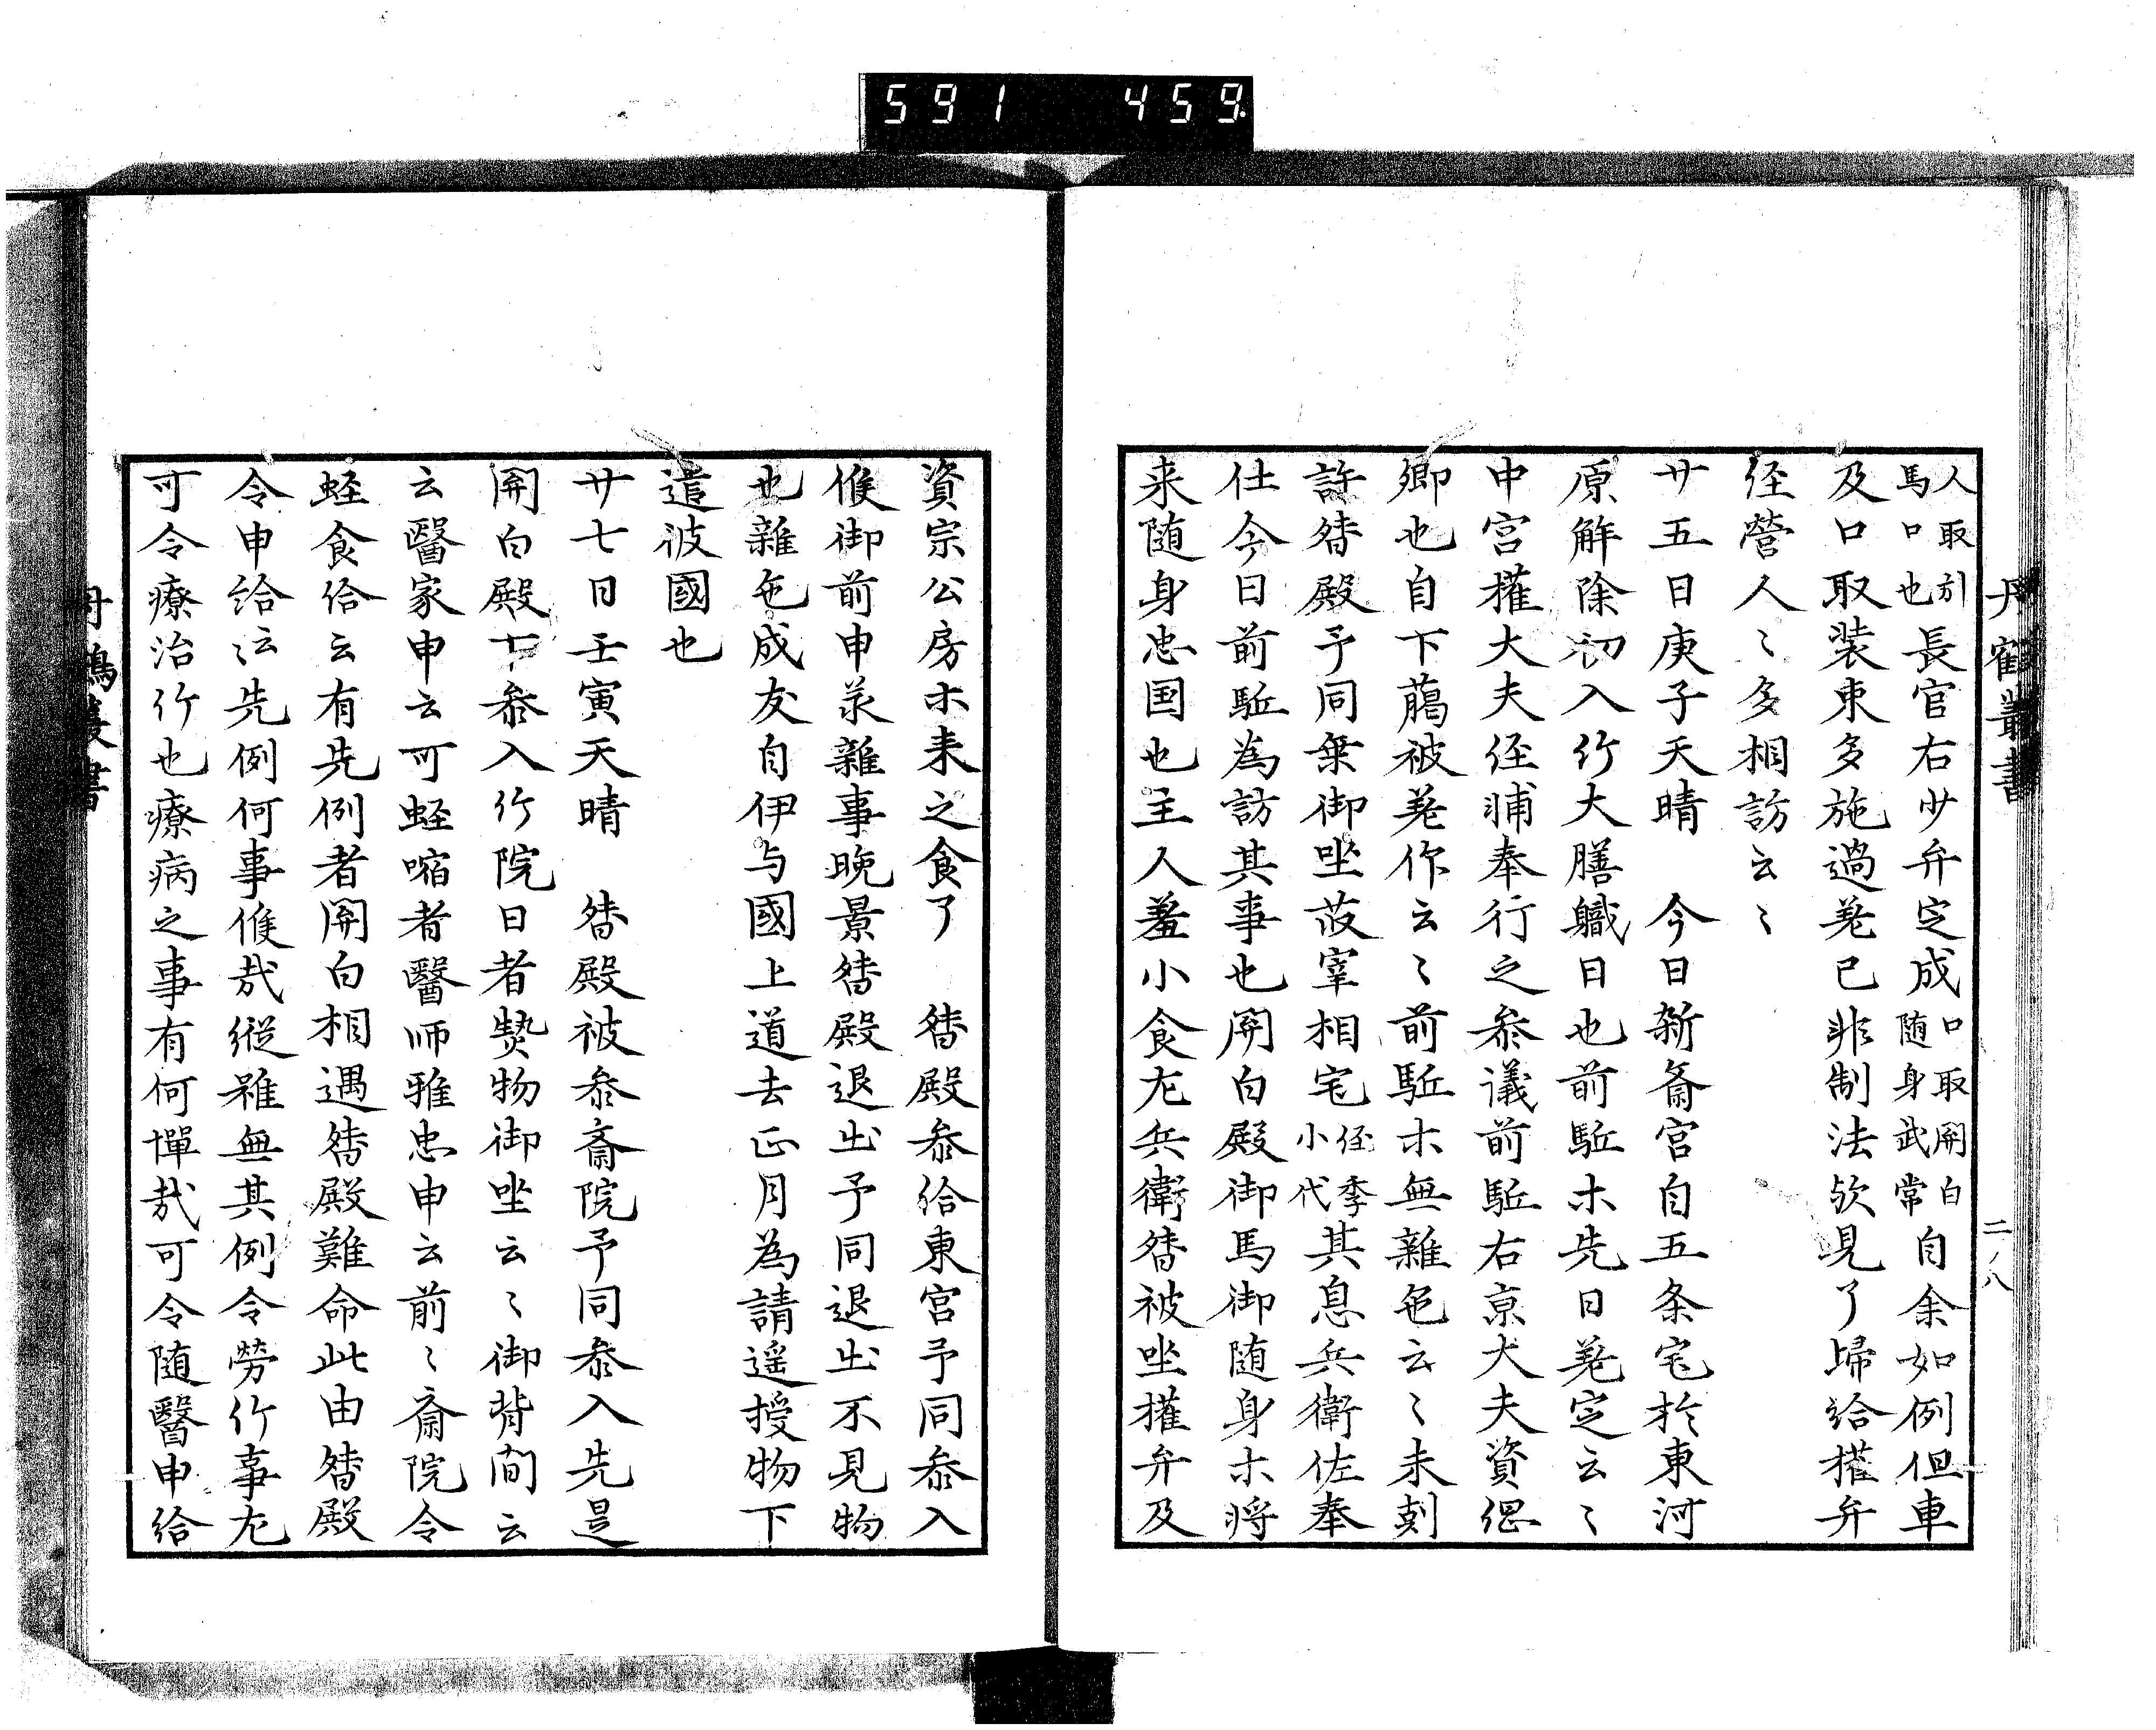 591 459
丹鶴叢書
二ノ八
人取別馬口也長官右少弁定成口取関白随身武常自余如例但車
及口取装束多施過差已非制法欤見了帰給権弁
経営人〻多相訪云〻
廿五日庚子天晴　今日新斎宮自五条宅於東河
原解除初入行大膳職日也前駈木先日差定云〻
中宮権大夫経輔奉行之参議前駈右京大夫資
卿也自下﨟被差作云〻前駈木無雑色云〻未剋
許督殿予同乗御坐故宰相宅経季小代其息兵衛佐奉
仕今日前駈為訪其事也関白殿御馬御随身木将
来随身忠国也主人羞小食左兵衛督被坐権弁及
資宗公房木来之食了　督殿参給東宮予同参入
候御前申承雑事晩景督殿退出予同退出不見物
也雑色成友自伊与國上道去正月為請遥授物下
遣彼國也
廿七日壬寅天晴　督殿被参斎院予同参入先是
関白殿下参入行院日者熱物御坐云〻御背間云
云醫家申云可蛭喰者醫師雅忠申云前〻斎院令
蛭食給云有先例者関白相遇督殿難命此由督殿
令申給云〻先例何事候哉縦雖無其例令労行事尤
可令療治行也療病之事有何憚哉可令随醫申給
丹鶴叢書